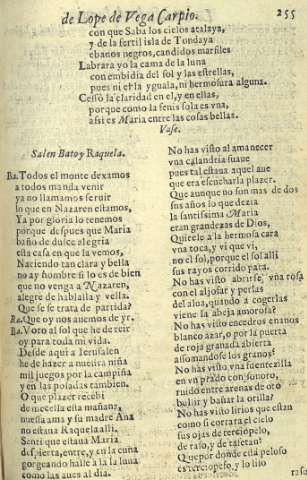 de Lope de Vega Carpio. 255
con que Saba los cielos atalaya,
y de la fertil isla de Tondaya
ebanos negros, candidos marfiles
Labrara yo la cama de la luna
con embidia del sol y las estrellas,
pues ni ella yguala, ni hermosura alguna.
Cessò la claridad en el, y en ellas,
porque como la fenis sola es vna,
assi es Maria entre las cosas bellas.
Vase.
Salen Bato y Raquela.
Ba. Todos el monte dexamos
a todos manda venir
ya no llamamos seruir
lo que en Nazaren estamos,
Ya por gloria lo tenemos
porque despues que Maria
baño de dulce alegria
esta casa en que la vemos,
Naciendo tan clara y bella
no ay hombre si lo es de bien
que no venga a Nazaren,
alegre de hablalla y vella.
Que se se trata de partida?
Ra. Que oy nos auemos de yr.
Ba. Voto al sol que he de reir
oy para toda mi vida.
Desde aqui a Ierusalen
he de hazer a nuestra niña
mil juegos por la campiña
y en las posadas tambien.
O que plazer recebi
de mecella esta mañana,
nuestra ama y su madre Ana
no estaua Raquela alli.
Senti que estaua Maria
despierta, entre, y en la cuna
gorgeando halle a la luna
como las aues al dia.
No has visto al amanecer
vna calandria suaue
pues tal estaua aquel aue
que era escucharla plazer.
Que aunque no son mas de dos
sus años lo que dezia
la santissima Maria
eran grandezas de Dios,
Quitele a la hermosa cara
vna toca, y vi que vi,
no el sol, porque el sol alli
sus rayos corrido para.
No has visto abrirse vna rosa
con el aljofar y perlas
del alua, quando a cogerlas
viene la abeja amorosa?
No has visto en cedros enanos
blanco azar, o por la puerta
de roja granada abierta
assomandose los granos?
No has visto vna fuentezilla
en vn prado con sonoro,
ruido entre arenas de oro
bullir y bañar la orilla?
No has visto lirios que estan
como si cerrara el cielo
sus ojas de terciopelo,
de raso, y de tafetan?
Que por donde está peloso
es terciopelo, y lo liso